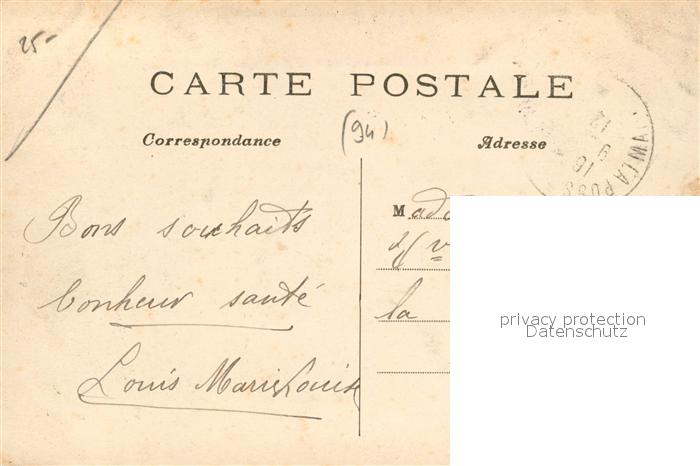 25-
CARTE POSTALE
(94)
Correspondance
Adresse
Bons souhaits
bonheur santé
Louis Marie Louise
M
la
privacy protection
Datenschutz